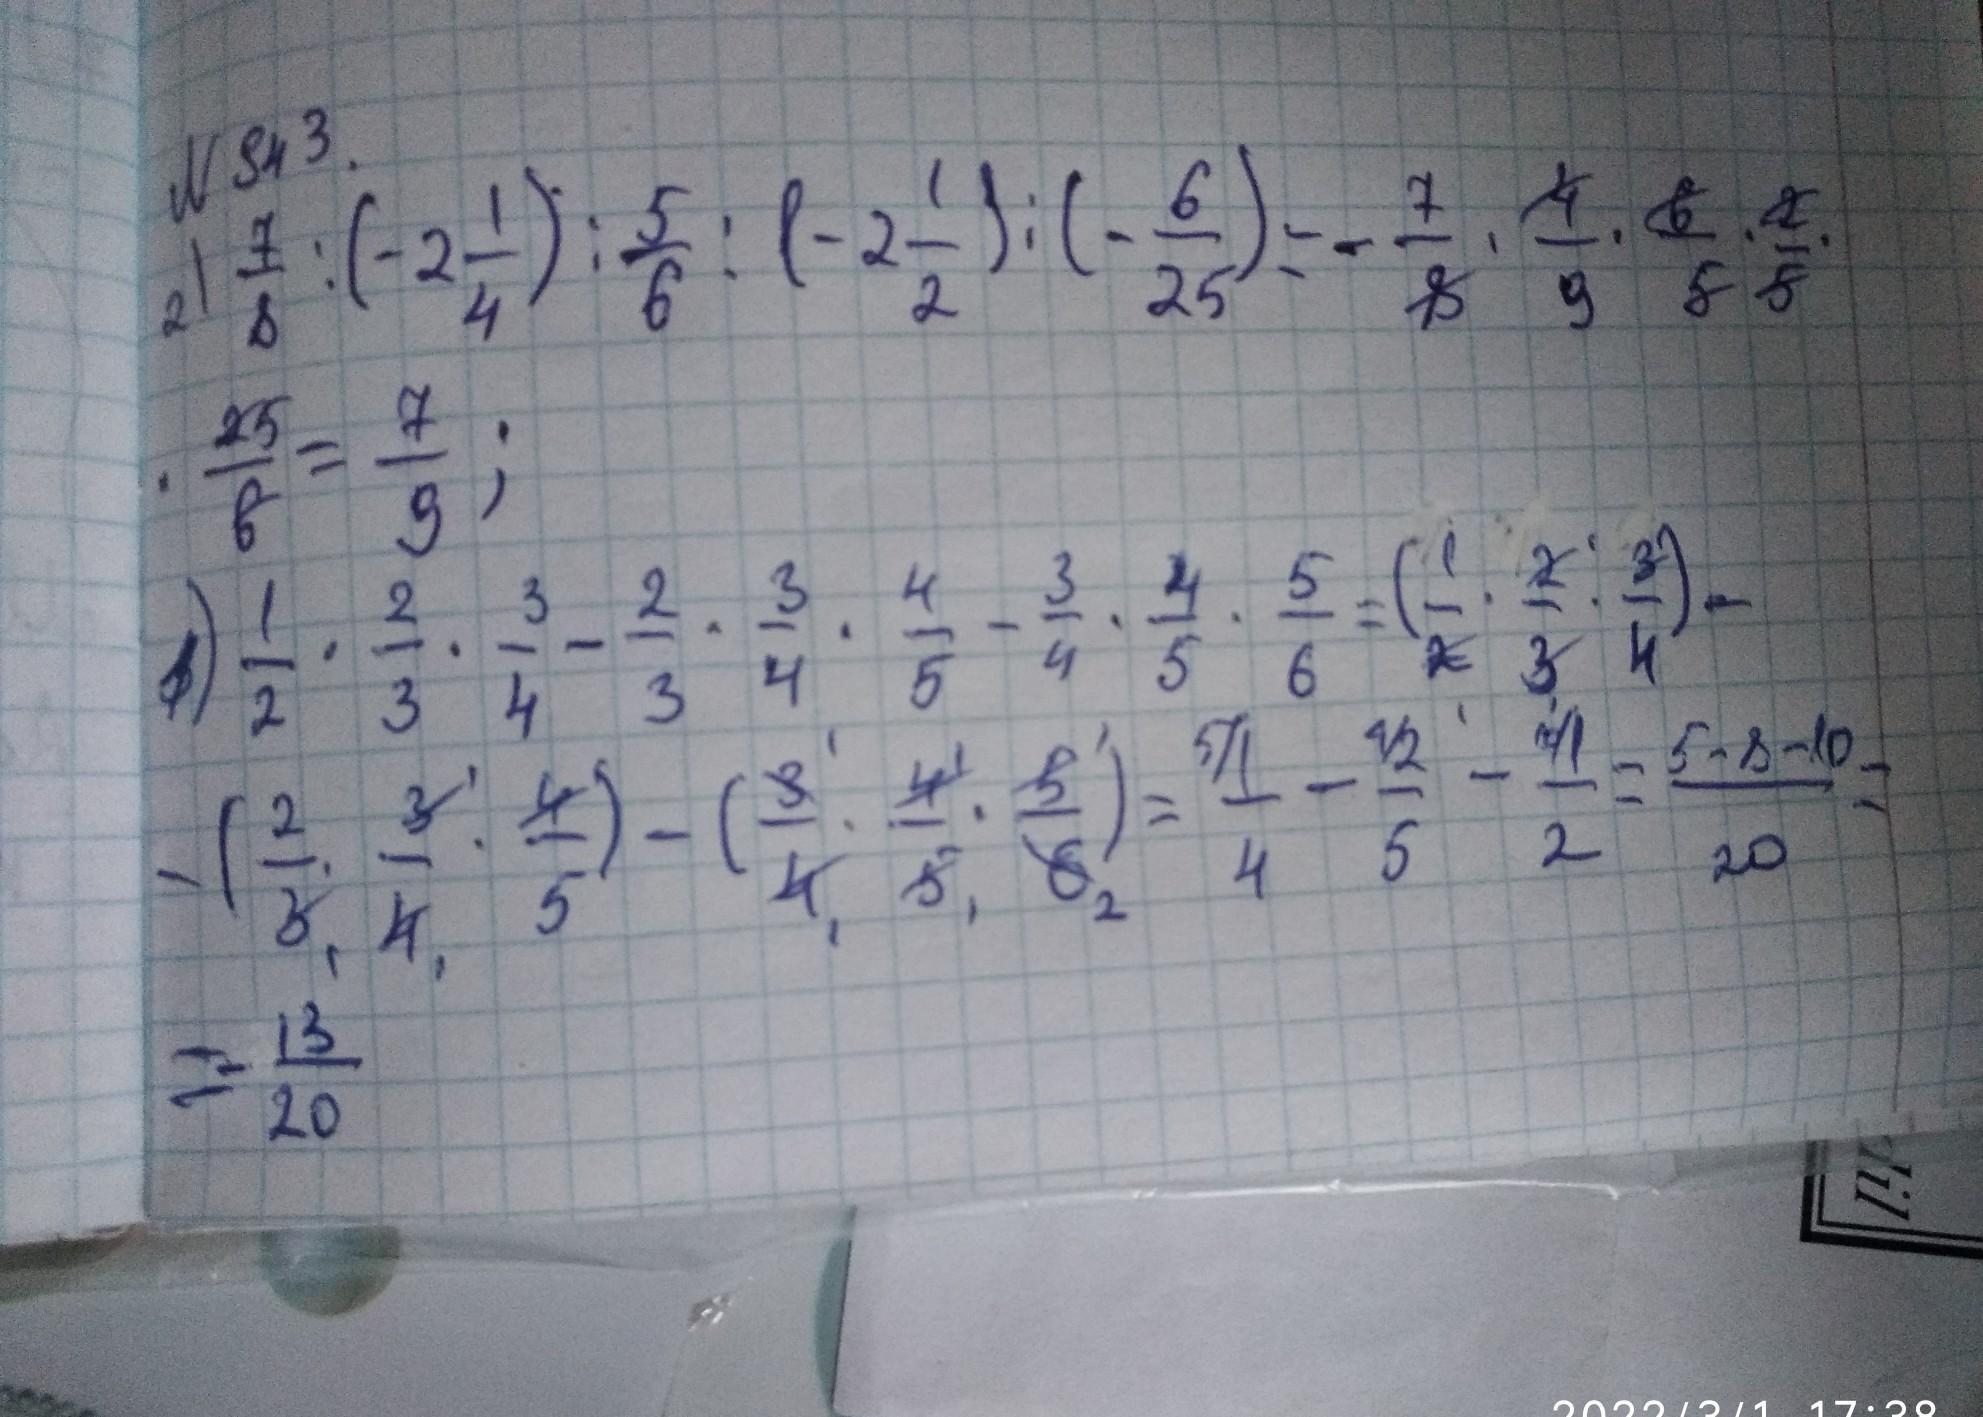 N 843.
2) 7/8 : (-2 1/4) : 5/6 : (-2 1/2) : (- 6/25) = - 7/8 · 4/9 · 6/5 · 2/5 ·
· 25/6 = 7/9 ;
1/2 · 2/3 · 3/4 - 2/3 · 3/4 · 4/5 - 3/4 · 4/5 · 5/6 = (1/2 · 2/3 · 3/4) -
- (2/3 · 3/4 · 4/5) - (3/4 · 4/5 · 5/6) = 1/4 - 2/5 - 1/2 = 5-8-10/20 =
= 13/20
2022/3/1 17:38